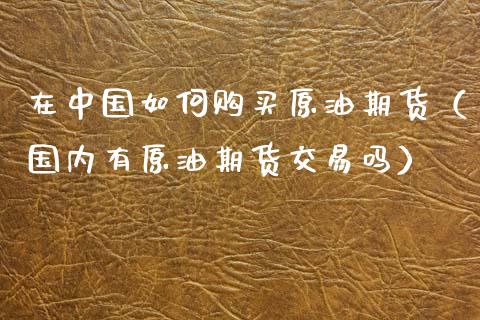 在中国如何购买原油期货（
国内有原油期货交易吗）